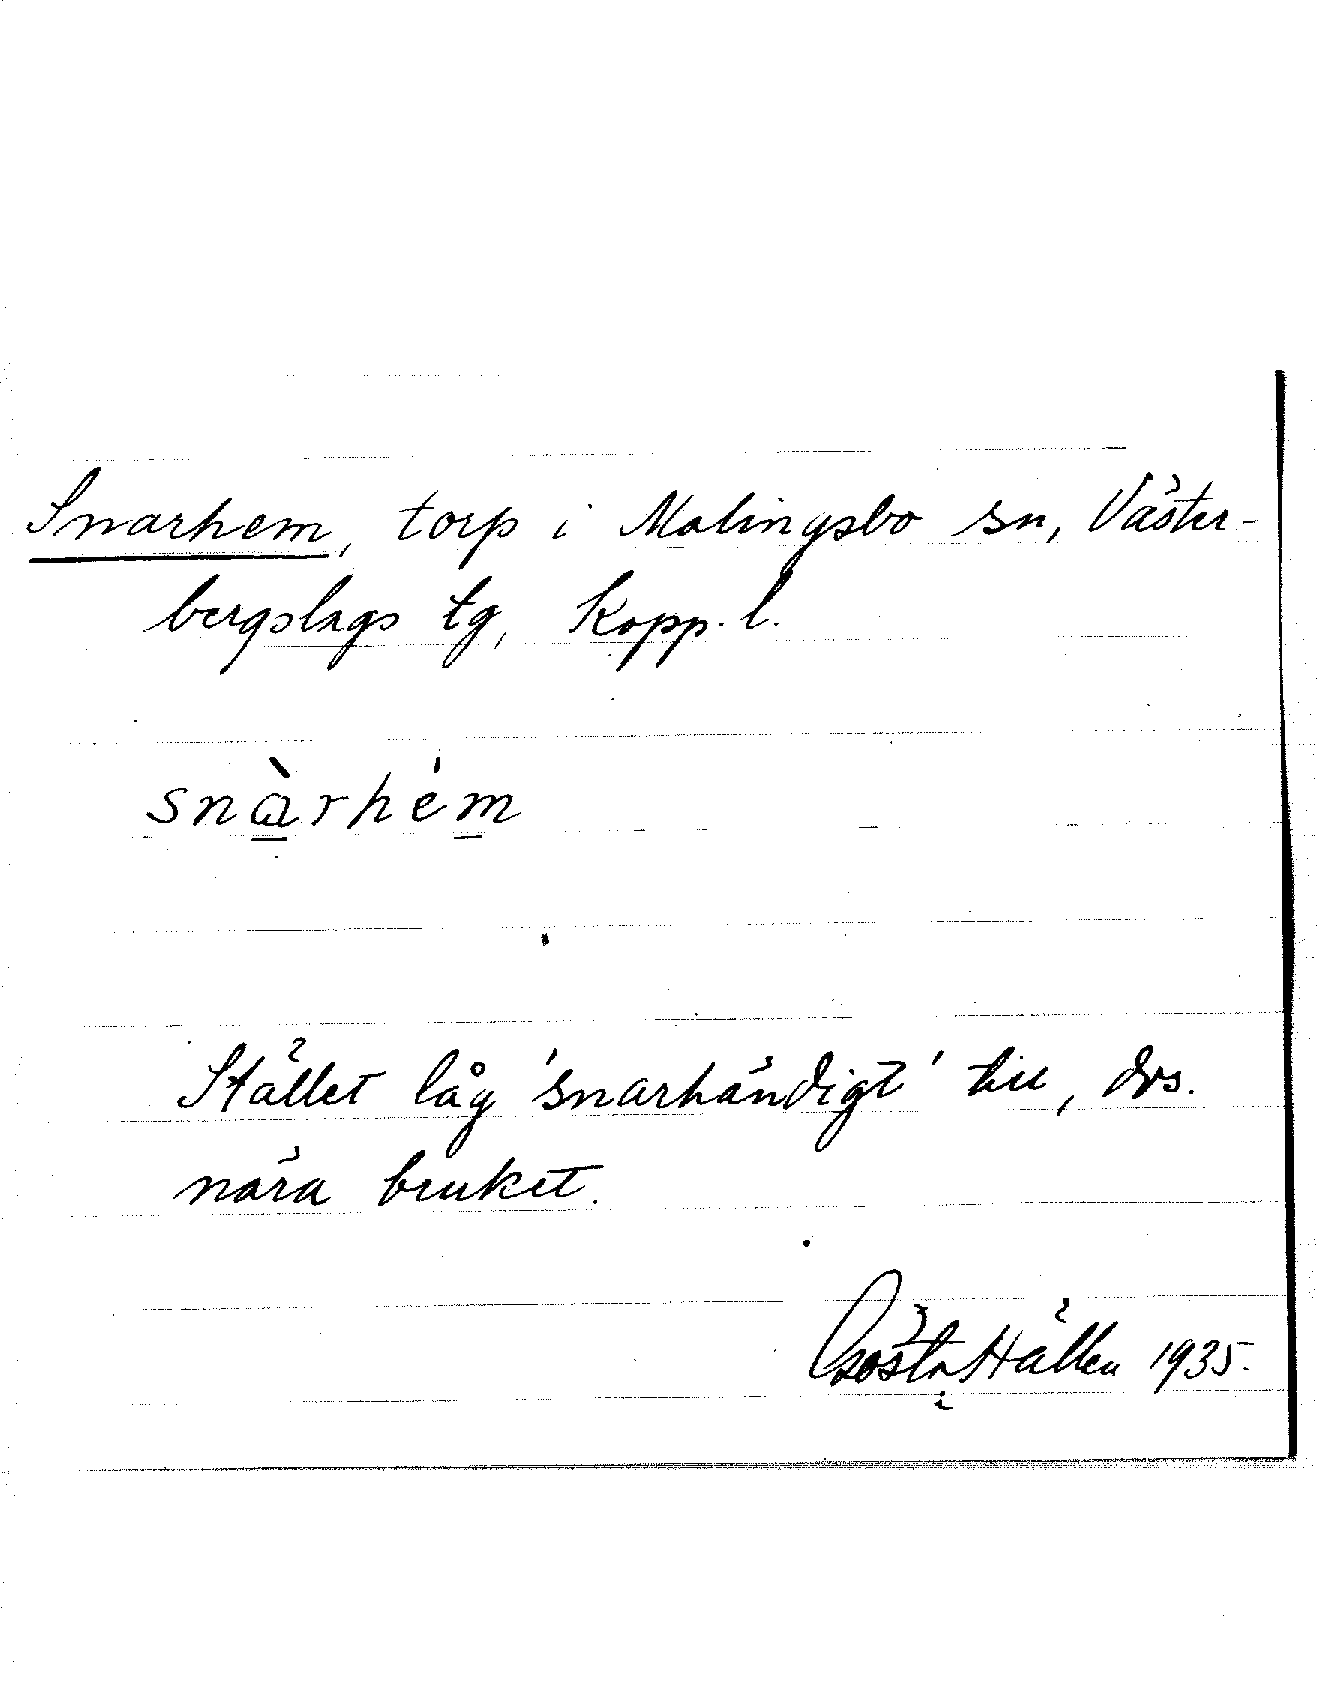 Snarhem, torp i Malingsbo sn, Väster-
bergslags tg, Kopp. l.
snàrhém
Stället låg 'snarhändigt' till, dvs.
nära bruket.
Gösta Hällen 1935.